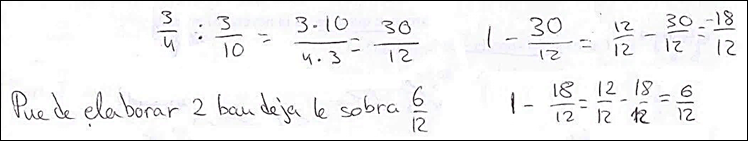 3/4 : 3/10 = 3·10/4·3 = 30/12    1 - 30/12 = 12/12 - 30/12 = -18/12
Puede elaborar 2 bandeja le sobra 6/12    1 - 18/12 = 12/12 - 18/12 = 6/12